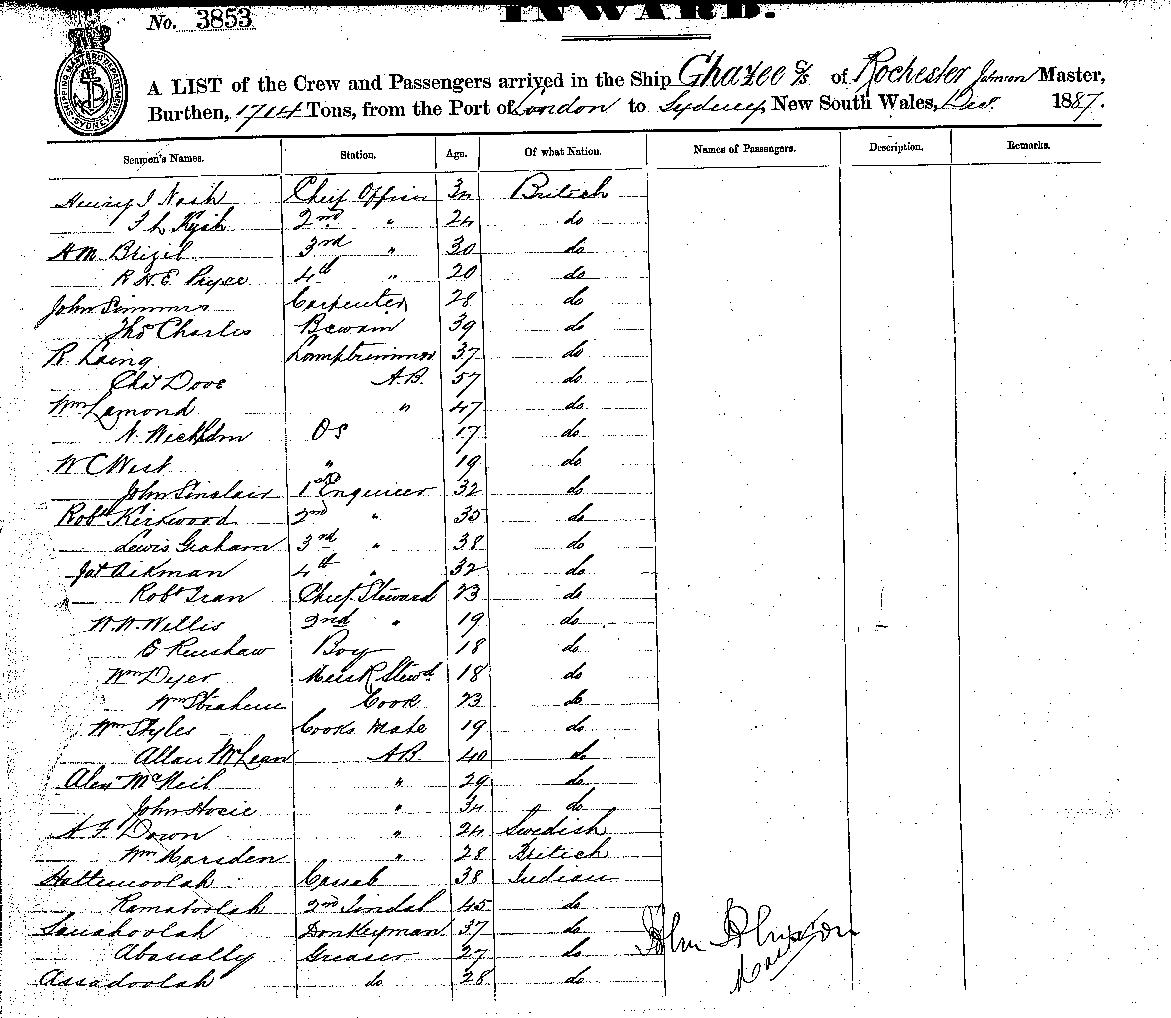 No. 3853
INWARD.
SHIPPING MASTER'S DEPARTMENT SYDNEY
A LIST of the Crew and Passengers arrived in the Ship Ghazee S/S of Rochester Johnson Master,
Burthen, 1714 Tons, from the Port of London to Sydney, New South Wales, Dec. 1887.
Seamen's Names. Station. Age. Of what Nation. Names of Passengers. Description. Remarks.
Henry J Nash Chief Officer 34 British
2nd " 24 do
3rd " 30 do
R H. E. Pryce 4th " 20 do
John Simmns Carpenter 28 do
Thos Charles Boswain 39 do
R. Laing Lamptrimmer 37 do
Chas Dove A.B. 57 do
Wm Lamond " 47 do
OS 17 do
W C West " 19 do
John Sinclair 1st Engineer 32 do
Robt Kirkwood 2nd " 35 do
Lewis Graham 3rd " 38 do
Jas Aikman 4th " 32 do
Robt Chief Steward 23 do
W. W. Willis 2nd " 19 do
E Renshaw Boy 18 do
Wm Dyer Mess R Stewd 18 do
Wm Cook 23 do
Wm Styles Cooks Mate 19 do
Allan McLean A.B. 40 do
Alex McNeil " 29 do
John Hosie " 34 do
A. F Down " 24 Swedish
Wm Marsden " 28 British
Hattemoolah Cassab 38 Indian
Ramatoolah 2nd Tindal 45 do
Sanadoolah Donkeyman 37 do
Abanally Greaser 27 do
Assadoolah do 28 do
John Johnson
Master